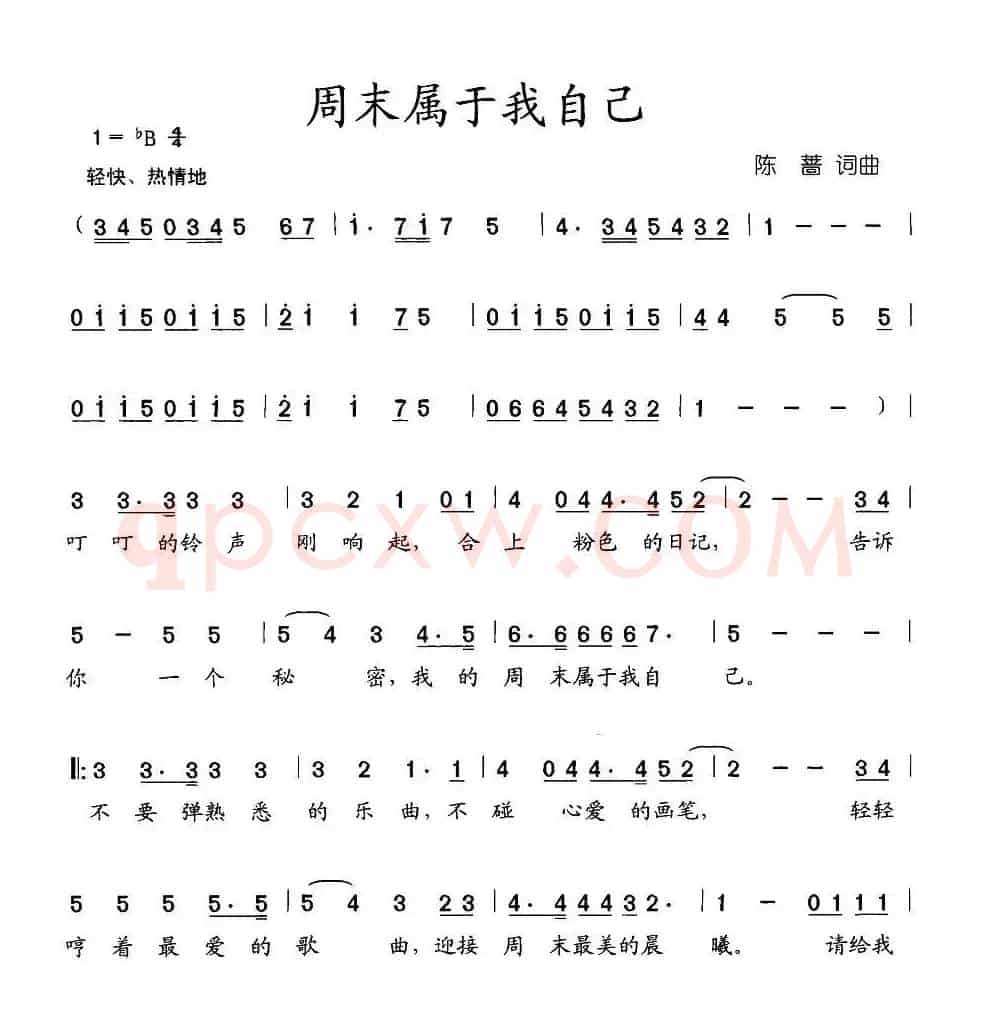 周末属于我自己
1 = ♭B 4/4
陈 蔷 词曲
轻快、热情地
( 3 4 5 0 3 4 5 6 7 | i · 7 i 7 5 | 4 · 3 4 5 4 3 2 | 1 – – – |
0 i i 5 0 i i 5 | 2 i i 7 5 | 0 i i 5 0 i i 5 | 4 4 5 5 5 |
0 i i 5 0 i i 5 | 2 i i 7 5 | 0 6 6 4 5 4 3 2 | 1 – – – ) |
3 3 · 3 3 3 | 3 2 1 0 1 | 4 0 4 4 · 4 5 2 | 2 – – 3 4 |
叮 叮 的铃 声 刚 响 起, 合 上 粉色 的日记, 告诉
5 – 5 5 | 5 4 3 4 · 5 | 6 · 6 6 6 6 7 · | 5 – – – |
你 一 个 秘 密, 我 的 周 末属于我自 己。
‖: 3 3 · 3 3 3 | 3 2 1 · 1 | 4 0 4 4 · 4 5 2 | 2 – – 3 4 |
不 要 弹熟 悉 的 乐 曲, 不 碰 心爱 的画笔, 轻轻
5 5 5 5 · 5 | 5 4 3 2 3 | 4 · 4 4 4 3 2 · | 1 – 0 1 1 1 |
哼 着 最 爱 的 歌 曲, 迎接 周 末最美的晨 曦。 请给我
qpcxw.COM